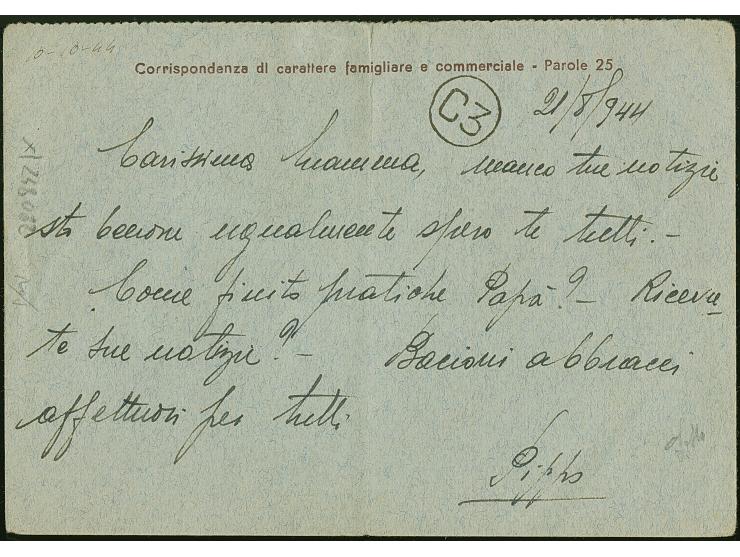 10-10-44
Corrispondenza di carattere famigliare e commerciale - Parole 25
C3
21/8/944
Carissima Mamma, manco tue notizie
sto benone ugualmente spero te tutti.-
Come finite pratiche Papà?- Ricevu-
te sue notizie?- Bacioni abbracci
affettuosi per tutti
Pippo